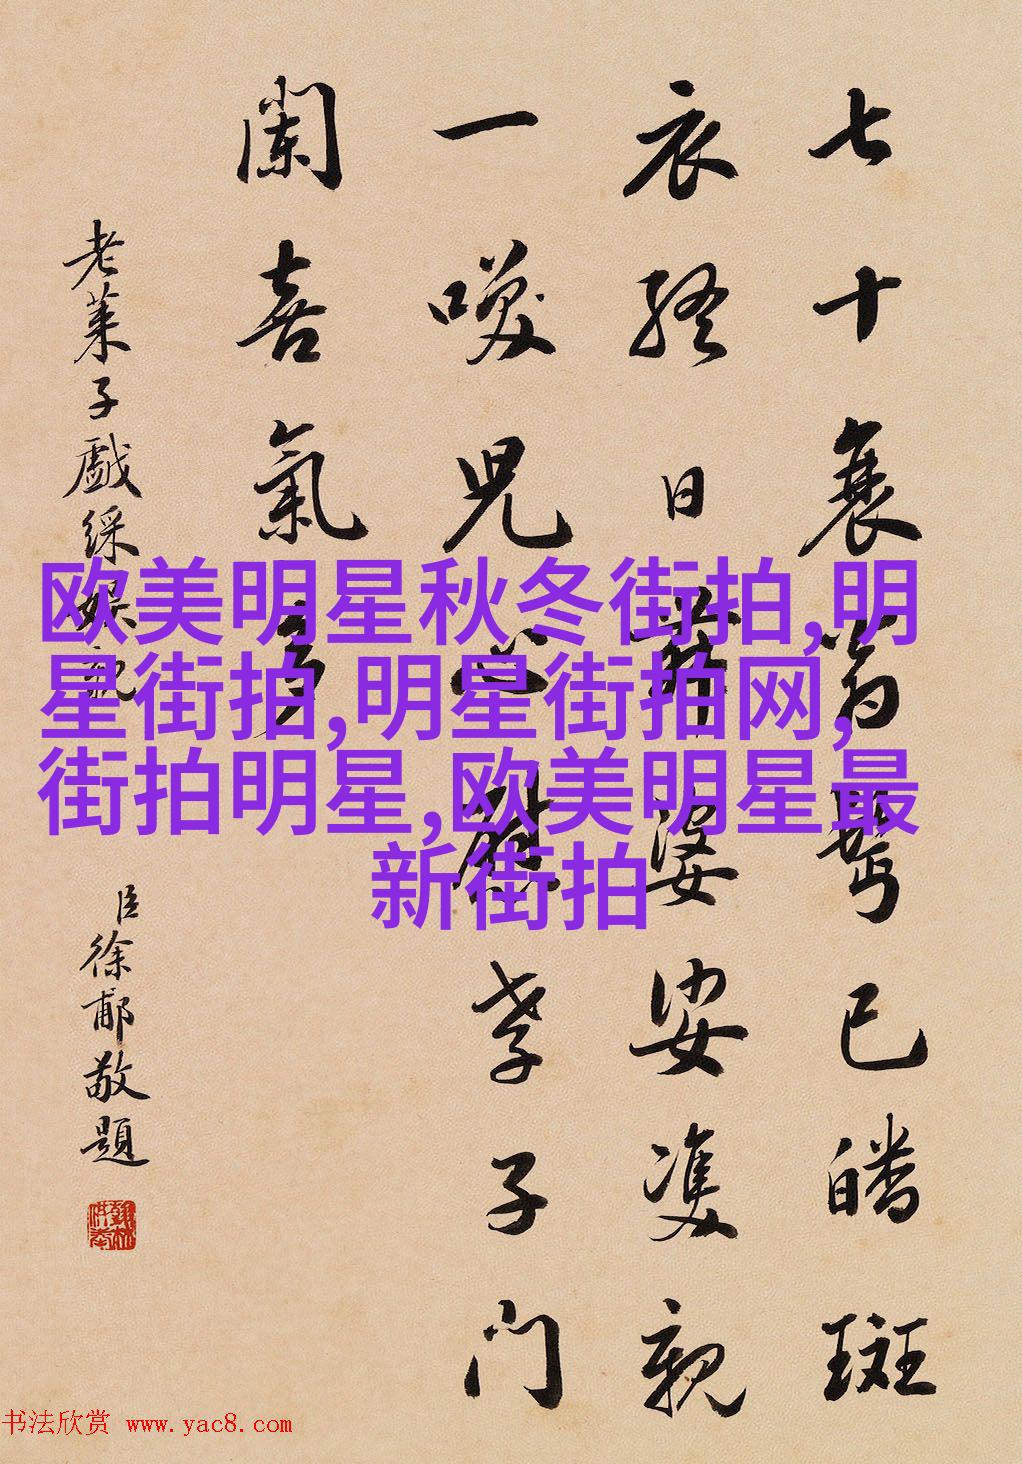 七十衰翁鬢已皤斑
衣終日舞婆娑雙親
一喚兒心慰孝子門
闌喜氣多
老萊子戲綵娛親
臣徐郙敬題
欧美明星秋冬街拍,明
星街拍,明星街拍网,
街拍明星,欧美明星最
新街拍
书法欣赏 www.yac8.com